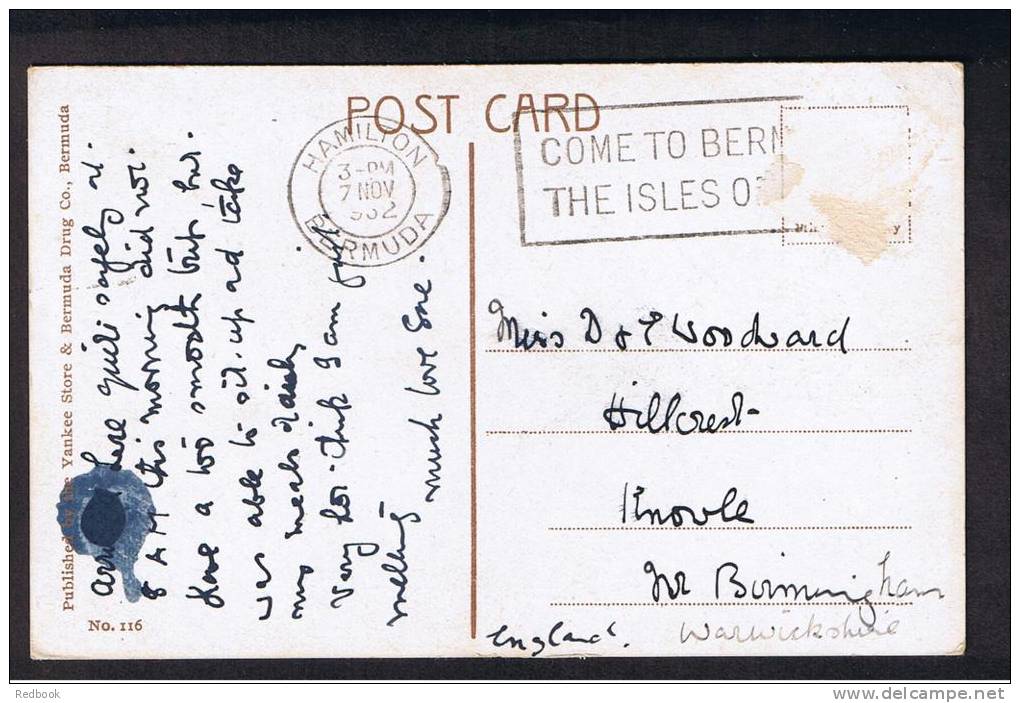 POST CARD
HAMILTON
3-PM
7 NOV
BERMUDA
COME TO BERM
THE ISLES O
Published by the Yankee Store & Bermuda Drug Co., Bermuda
No. 116
here quite safely at
8 AM this morning did not
have a too smooth trip but
was able to sit up and take
my meals
Very hot think I am just
melting
much love
Miss D & E Woodward
Hillcrest
Knowle
Nr Birmingham
Warwickshire
England.
Redbook
www.delcampe.net